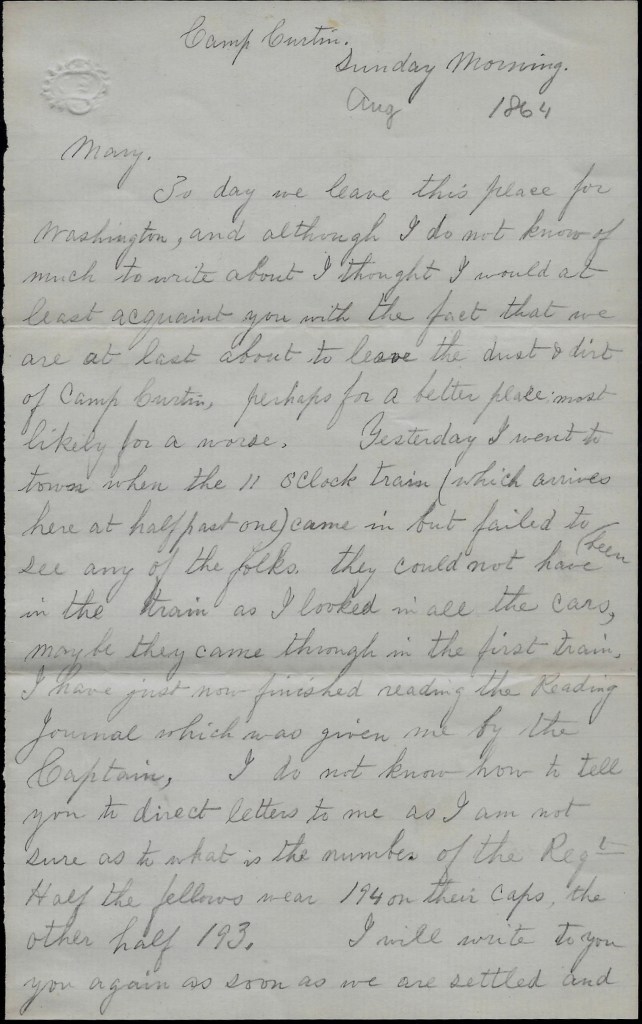 Camp Curtin.
Sunday Morning.
Aug 1864
Mary.
To day we leave this place for
Washington, and although I do not know of
much to write about I thought I would at
least acquaint you with the fact that we
are at last about to leave the dust & dirt
of Camp Curtin, perhaps for a better place; most
likely for a worse. Yesterday I went to
town when the 11 oClock train (which arrives
here at half past one) came in but failed to
see any of the folks. they could not have (been
in the train as I looked in all the cars,
maybe they came through in the first train.
I have just now finished reading the Reading
Journal which was given me by the
Captain, I do not know how to tell
you to direct letters to me as I am not
sure as to what is the number of the Regt
Half the fellows wear 194 on their caps, the
other half 193. I will write to you
you again as soon as we are settled and